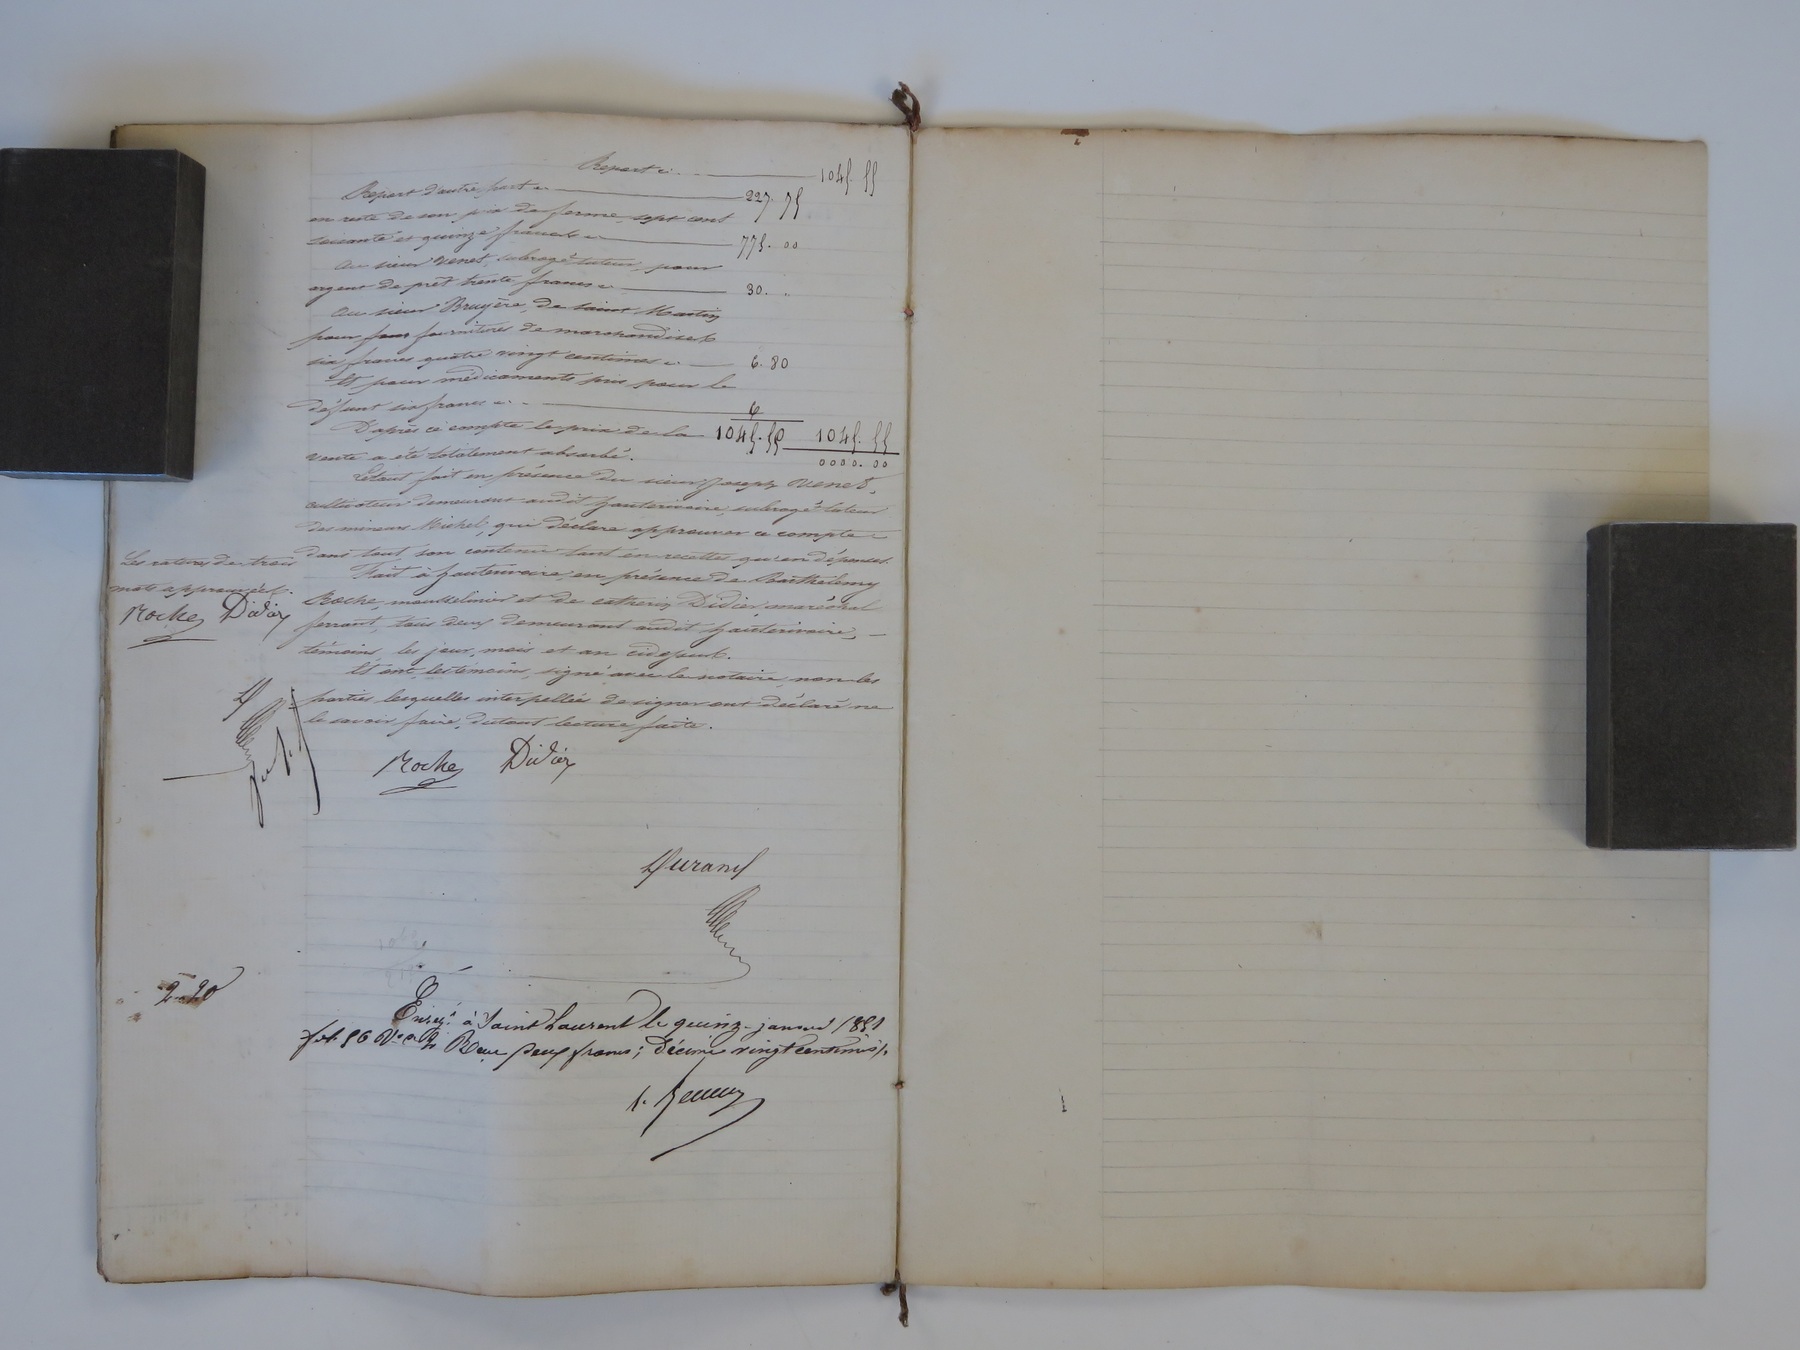 Report 1045. 55
Report d'autre part 227. 75
en reste de son prix de ferme, sept cent
soixante et quinze francs 775. 00
Au sieur Venet, subrogé tuteur, pour
argent de prêt trente francs 30. "
Au sieur Bruyère, de Saint Martin
pour fournitures de marchandises
six francs quatre vingt centimes 6. 80
Et pour médicaments pris pour le
défunt six francs 6
D'après ce compte le prix de la 1045. 55 1045. 55
vente a été totalement absorbé. 0000. 00
Etant fait en présence du sieur Joseph Venet,
cultivateur demeurant audit hauterivoire, subrogé tuteur
des mineurs Michel, qui déclare approuver ce compte
dans tout son contenu tant en recettes qu'en dépenses.
Fait à hauterivoire, en présence de Barthélemy
Roche, mousselinier et de Didier maréchal
ferrant, tous deux demeurant audit hauterivoire,
témoins, les jour, mois et an
Et ont, les témoins, signé avec le notaire, non les
parties lesquelles interpellées de signer ont déclaré ne
le savoir faire, du tout lecture faite.
Les ratures de trois
mots approuvées.
Roche Didier
Roche Didier
Durand
2 20
Enreg. à Saint Laurent le quinze janvier 1851
fol. 96 Reçu deux francs; décime vingt centimes